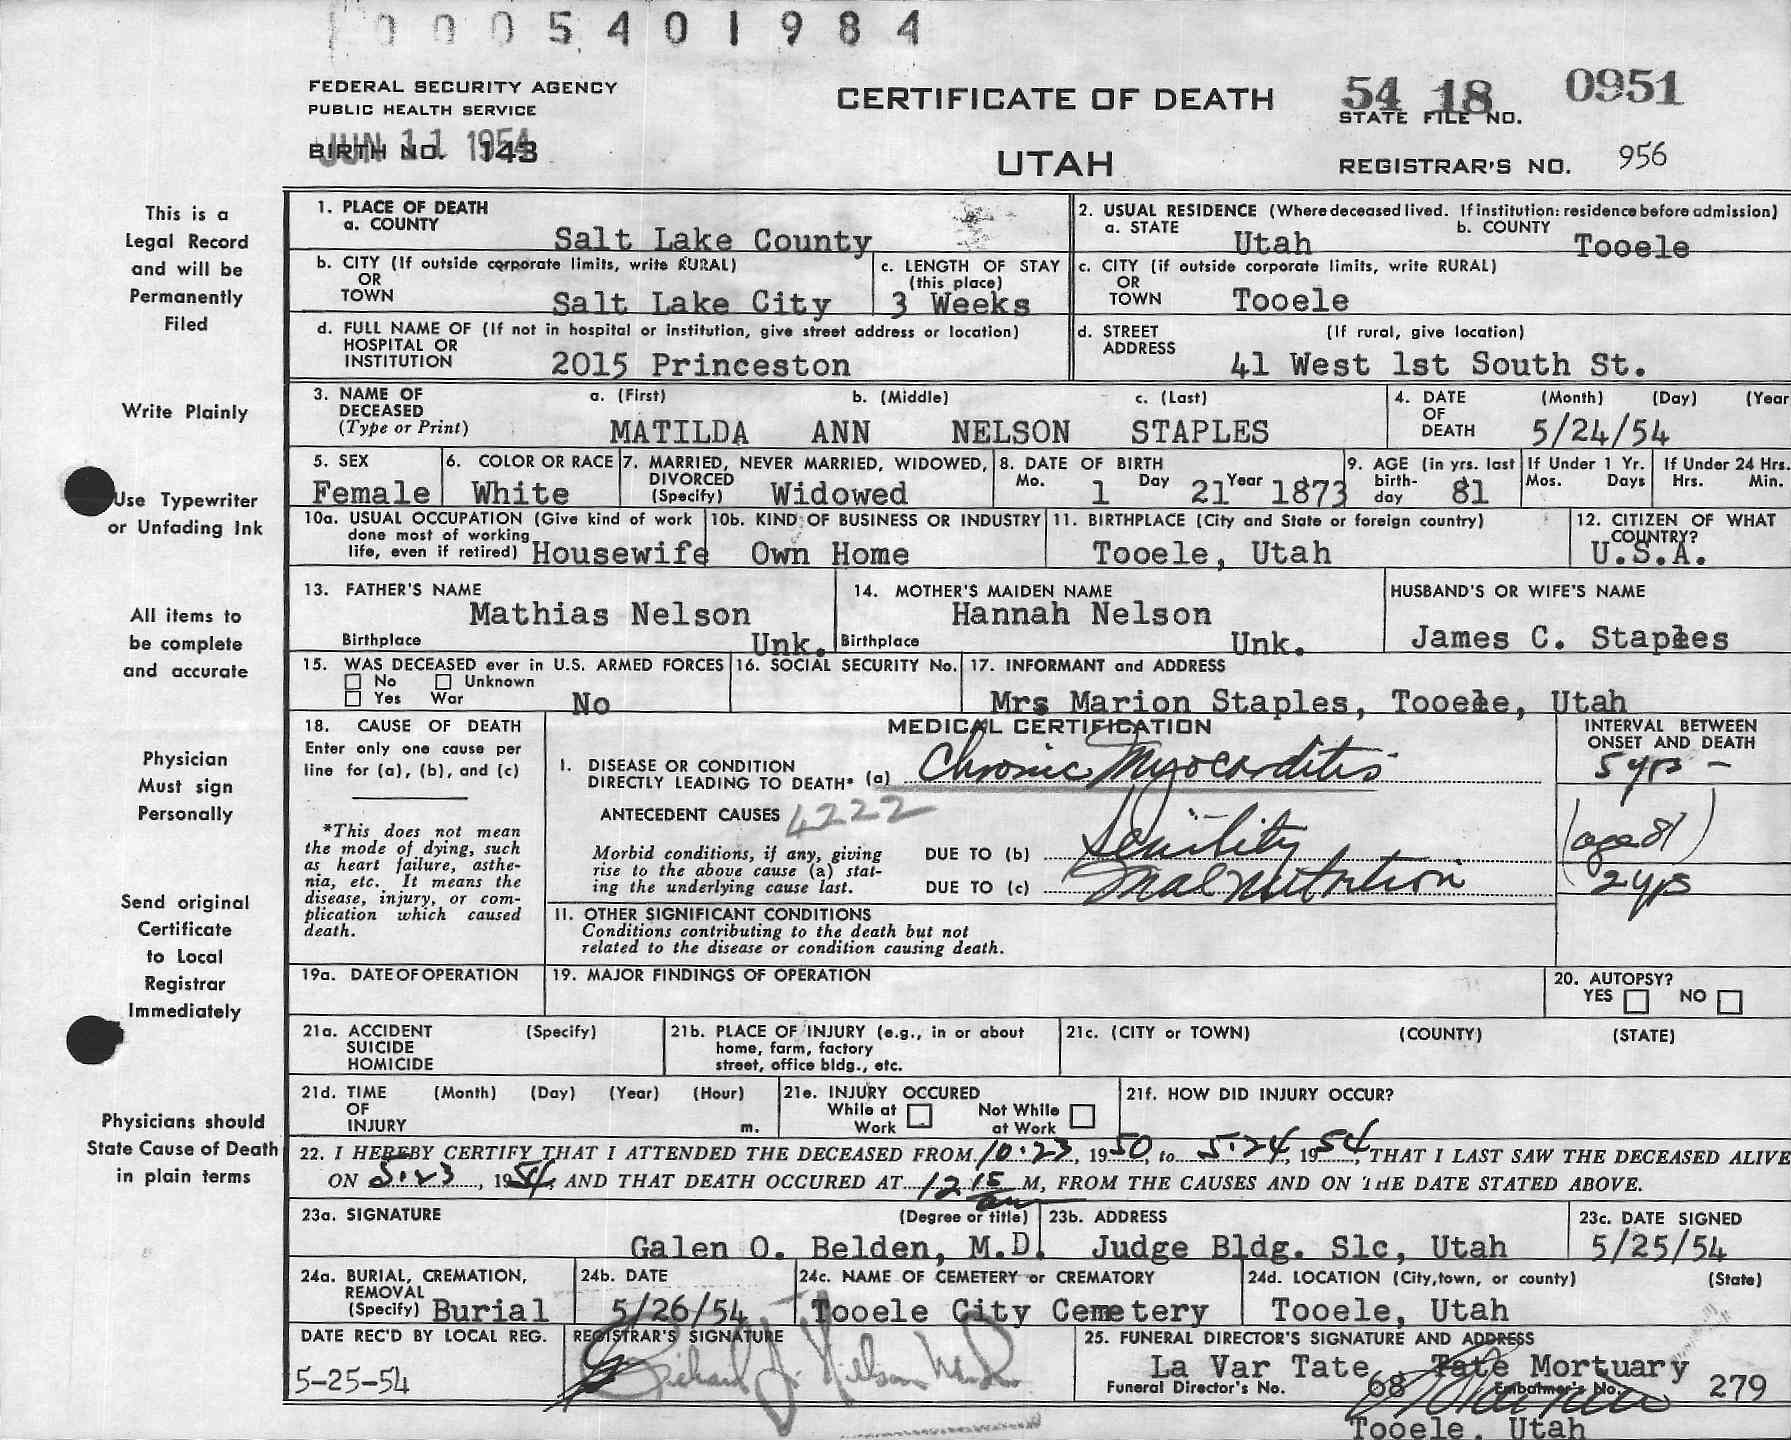 0005401984
FEDERAL SECURITY AGENCY
PUBLIC HEALTH SERVICE
CERTIFICATE OF DEATH
54 18 0951
STATE FILE NO.
JUN 11 1954
BIRTH NO. 143
UTAH
REGISTRAR'S NO. 956
This is a
Legal Record
and will be
Permanently
Filed
Write Plainly
Use Typewriter
or Unfading Ink
All items to
be complete
and accurate
Physician
Must sign
Personally
Send original
Certificate
to Local
Registrar
Immediately
Physicians should
State Cause of Death
in plain terms
1. PLACE OF DEATH
a. COUNTY
Salt Lake County
2. USUAL RESIDENCE (Where deceased lived. If institution: residence before admission)
a. STATE Utah b. COUNTY Tooele
b. CITY (If outside corporate limits, write RURAL)
OR
TOWN Salt Lake City
c. LENGTH OF STAY
(this place)
3 Weeks
c. CITY (if outside corporate limits, write RURAL)
OR
TOWN Tooele
d. FULL NAME OF (If not in hospital or institution, give street address or location)
HOSPITAL OR
INSTITUTION 2015 Princeston
d. STREET (If rural, give location)
ADDRESS
41 West 1st South St.
3. NAME OF a. (First) b. (Middle) c. (Last)
DECEASED
(Type or Print) MATILDA ANN NELSON STAPLES
4. DATE (Month) (Day) (Year
OF
DEATH 5/24/54
5. SEX
Female
6. COLOR OR RACE
White
7. MARRIED, NEVER MARRIED, WIDOWED,
DIVORCED
(Specify) Widowed
8. DATE OF BIRTH
Mo. 1 Day 21 Year 1873
9. AGE (in yrs. last
birth-
day 81
If Under 1 Yr.
Mos. Days
If Under 24 Hrs.
Hrs. Min.
10a. USUAL OCCUPATION (Give kind of work
done most of working
life, even if retired) Housewife
10b. KIND OF BUSINESS OR INDUSTRY
Own Home
11. BIRTHPLACE (City and State or foreign country)
Tooele, Utah
12. CITIZEN OF WHAT
COUNTRY?
U.S.A.
13. FATHER'S NAME
Mathias Nelson
Birthplace Unk.
14. MOTHER'S MAIDEN NAME
Hannah Nelson
Birthplace Unk.
HUSBAND'S OR WIFE'S NAME
James C. Staples
15. WAS DECEASED ever in U.S. ARMED FORCES
No Unknown
Yes War No
16. SOCIAL SECURITY No.
17. INFORMANT and ADDRESS
Mrs Marion Staples, Tooele, Utah
18. CAUSE OF DEATH
Enter only one cause per
line for (a), (b), and (c)
*This does not mean
the mode of dying, such
as heart failure, asthe-
nia, etc. It means the
disease, injury, or com-
plication which caused
death.
MEDICAL CERTIFICATION
I. DISEASE OR CONDITION
DIRECTLY LEADING TO DEATH* (a) Chronic Myocarditis
ANTECEDENT CAUSES 4222
Morbid conditions, if any, giving
rise to the above cause (a) stat-
ing the underlying cause last.
DUE TO (b) Senility
DUE TO (c) Malnutrition
INTERVAL BETWEEN
ONSET AND DEATH
5 yrs -
(age 81)
2 yrs
II. OTHER SIGNIFICANT CONDITIONS
Conditions contributing to the death but not
related to the disease or condition causing death.
19a. DATE OF OPERATION
19. MAJOR FINDINGS OF OPERATION
20. AUTOPSY?
YES NO
21a. ACCIDENT (Specify)
SUICIDE
HOMICIDE
21b. PLACE OF INJURY (e.g., in or about
home, farm, factory
street, office bldg., etc.
21c. (CITY or TOWN) (COUNTY) (STATE)
21d. TIME (Month) (Day) (Year) (Hour)
OF
INJURY m.
21e. INJURY OCCURED
While at Work Not While at Work
21f. HOW DID INJURY OCCUR?
22. I HEREBY CERTIFY THAT I ATTENDED THE DECEASED FROM 10-23, 1950, to 5-24, 1954, THAT I LAST SAW THE DECEASED ALIVE
ON 5-23, 1954, AND THAT DEATH OCCURED AT 12 15 am M, FROM THE CAUSES AND ON THE DATE STATED ABOVE.
23a. SIGNATURE (Degree or title)
Galen O. Belden, M.D.
23b. ADDRESS
Judge Bldg. Slc, Utah
23c. DATE SIGNED
5/25/54
24a. BURIAL, CREMATION,
REMOVAL
(Specify) Burial
24b. DATE
5/26/54
24c. NAME OF CEMETERY or CREMATORY
Tooele City Cemetery
24d. LOCATION (City, town, or county) (State)
Tooele, Utah
DATE REC'D BY LOCAL REG.
5-25-54
REGISTRAR'S SIGNATURE
25. FUNERAL DIRECTOR'S SIGNATURE AND ADDRESS
La Var Tate Tate Mortuary
Funeral Director's No. 68 Embalmer's No. 279
Tooele, Utah